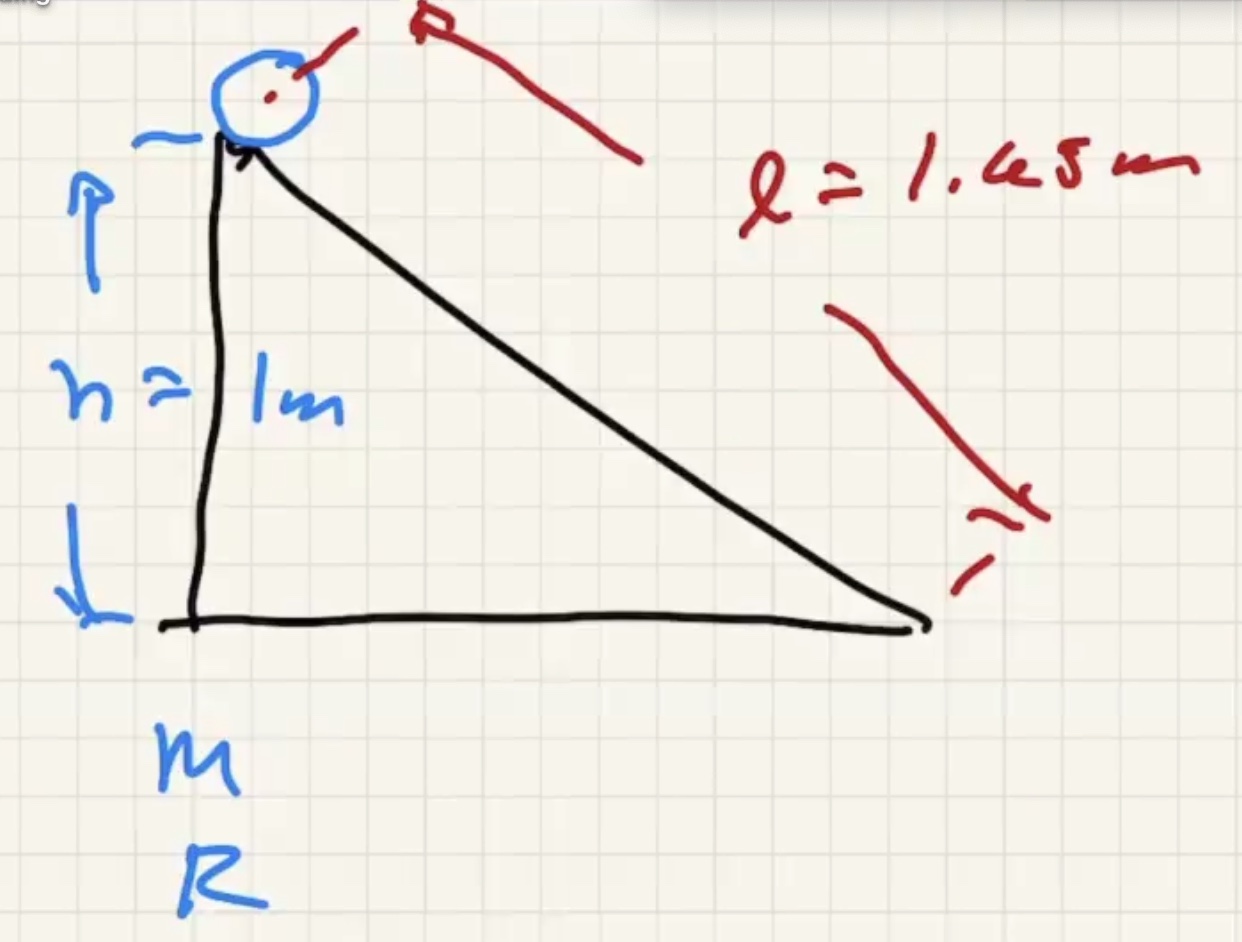 l = 1.45m
h = 1m
m
R